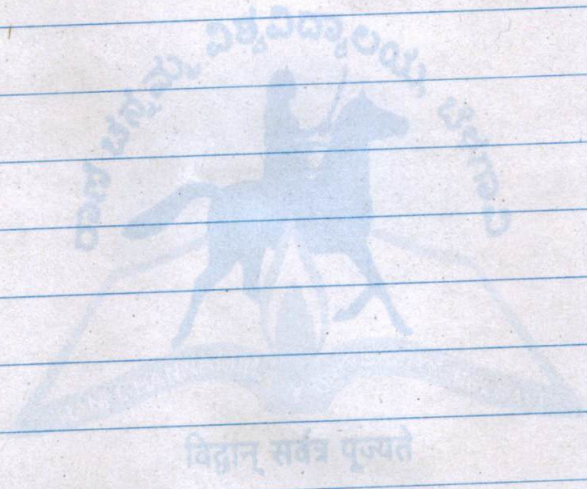 ರಾಣಿ ಚನ್ನಮ್ಮ ವಿಶ್ವವಿದ್ಯಾಲಯ, ಬೆಳಗಾವಿ
विद्वान् सर्वत्र पूज्यते